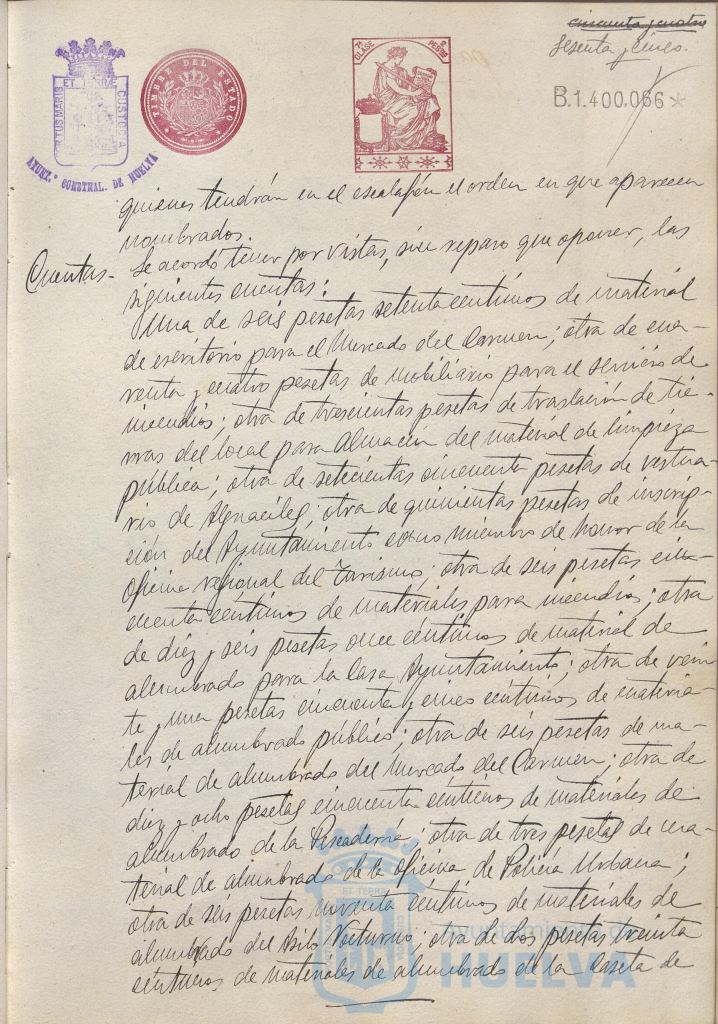 cincuenta y cuatro
Sesenta y cinco.
B.1.400.066 *
7ª CLASE
PESETAS
TIMBRE DEL ESTADO
PORTUS MARIS ET TERRÆ CUSTODIA
AYUNT.º CONSTNAL. DE HUELVA
quienes tendrán en el escalafón el orden en que aparecen
nombrados.
Cuentas - Se acordó tener por vistas, sin reparo que oponer, las
siguientes cuentas:
Una de seis pesetas setenta céntimos de material
de escritorio para el Mercado del Carmen; otra de cua-
renta y cuatro pesetas de mobiliario para el servicio de
incendios; otra de trescientas pesetas de traslación de tie-
rras del local para Almacén del material de limpieza
pública; otra de setecientas cincuenta pesetas de vestua-
rio de Alguaciles; otra de quinientas pesetas de inscrip-
ción del Ayuntamiento como miembro de honor de la
Oficina regional del Turismo; otra de seis pesetas cin-
cuenta céntimos de materiales para incendios; otra
de diez y seis pesetas once céntimos de material de
alumbrado para la Casa Ayuntamiento; otra de vein
te y una pesetas cincuenta y cinco céntimos de materia-
les de alumbrado público; otra de seis pesetas de ma-
terial de alumbrado del Mercado del Carmen; otra de
diez y ocho pesetas cincuenta céntimos de materiales de
alumbrado de la Pescadería; otra de tres pesetas de ma-
terial de alumbrado de la oficina de Policía Urbana;
otra de seis pesetas noventa céntimos de materiales de
alumbrado del Asilo Nocturno; otra de dos pesetas treinta
céntimos de materiales de alumbrado de la Caseta de
ET TERRA
Ayuntamiento de
HUELVA